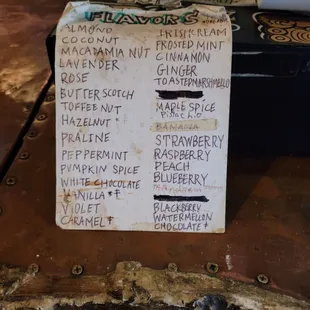 FLAVORS
ALMOND
COCONUT
MACADAMIA NUT
LAVENDER
ROSE
BUTTERSCOTCH
TOFFEE NUT
HAZELNUT
PRALINE
PEPPERMINT
PUMPKIN SPICE
WHITE CHOCOLATE
VANILLA *‡
VIOLET
CARAMEL *‡
IRISH CREAM
FROSTED MINT
CINNAMON
GINGER
TOASTED MARSHMELLO
MAPLE SPICE
PISTACHIO
BANANA
STRAWBERRY
RASPBERRY
PEACH
BLUEBERRY
BLACKBERRY
WATERMELON
CHOCOLATE ‡